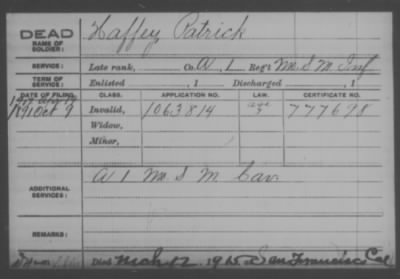 DEAD
NAME OF SOLDIER:
Haffey Patrick
SERVICE:
Late rank, Co. A, 1 Reg't M. S. M. Inf
TERM OF SERVICE:
Enlisted , 1 Discharged , 1
DATE OF FILING. CLASS. APPLICATION NO. LAW. CERTIFICATE NO.
1891 Oct 9 Invalid, 1063814 777698
Widow,
Minor,
ADDITIONAL SERVICES:
A 1 M. S. M. Cav
REMARKS:
Died Mch 12, 1915 San Francisco Cal